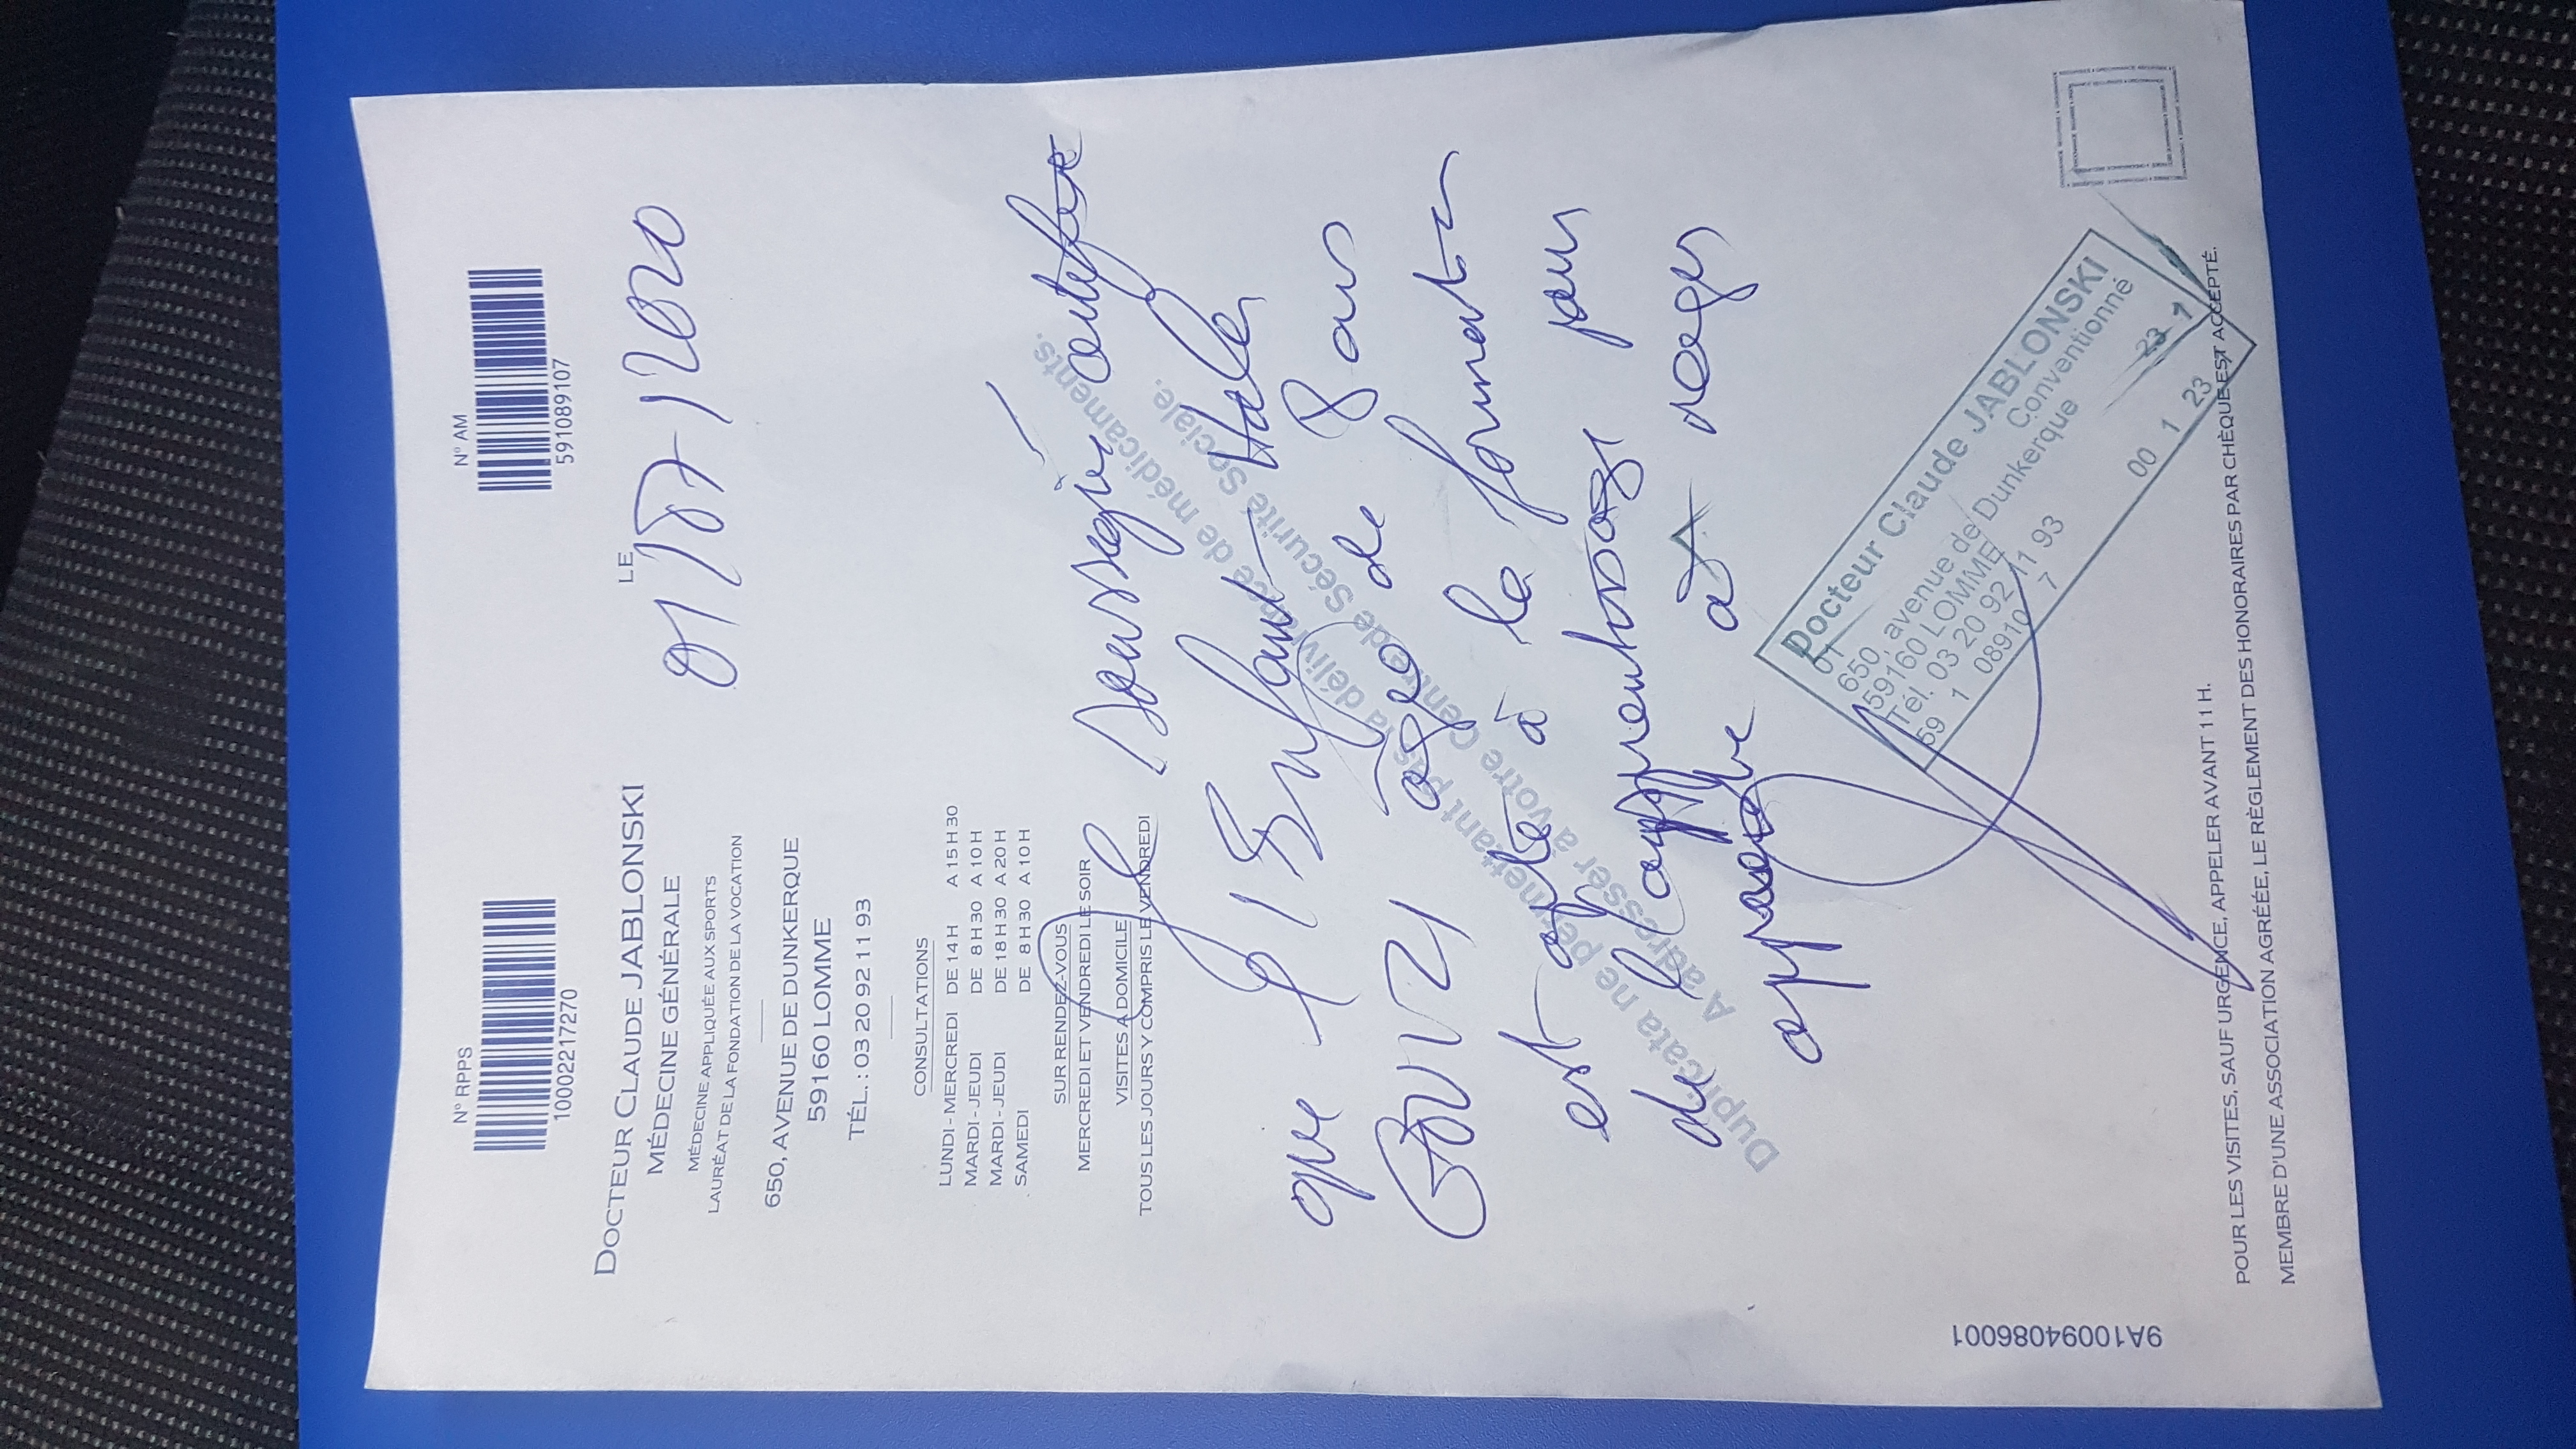 N° RPPS
10002217270
N° AM
591089107
DOCTEUR CLAUDE JABLONSKI
MÉDECINE GÉNÉRALE
MÉDECINE APPLIQUÉE AUX SPORTS
LAURÉAT DE LA FONDATION DE LA VOCATION
650, AVENUE DE DUNKERQUE
59160 LOMME
TÉL. : 03 20 92 11 93
LE
01/07/2020
CONSULTATIONS
LUNDI - MERCREDI DE 14 H A 15 H 30
MARDI - JEUDI DE 8 H 30 A 10 H
MARDI - JEUDI DE 18 H 30 A 20 H
SAMEDI DE 8 H 30 A 10 H
SUR RENDEZ-VOUS
MERCREDI ET VENDREDI LE SOIR
VISITES A DOMICILE
TOUS LES JOURS Y COMPRIS LE VENDREDI
Je soussigné certifie
que l'Enfant
âgée de 8 ans
est apte à la formation
de l'apprentissage pour
apprendre à nager
Duplicata ne permettant pas la délivrance de médicaments.
A adresser à votre Centre de Sécurité Sociale.
Docteur Claude JABLONSKI
01 Conventionné
650, avenue de Dunkerque
59160 LOMME
Tél. 03 20 92 11 93
59 1 08910 7 00 1 23
POUR LES VISITES, SAUF URGENCE, APPELER AVANT 11 H.
MEMBRE D'UNE ASSOCIATION AGRÉÉE, LE RÈGLEMENT DES HONORAIRES PAR CHÈQUE EST ACCEPTÉ.
9A10094086001